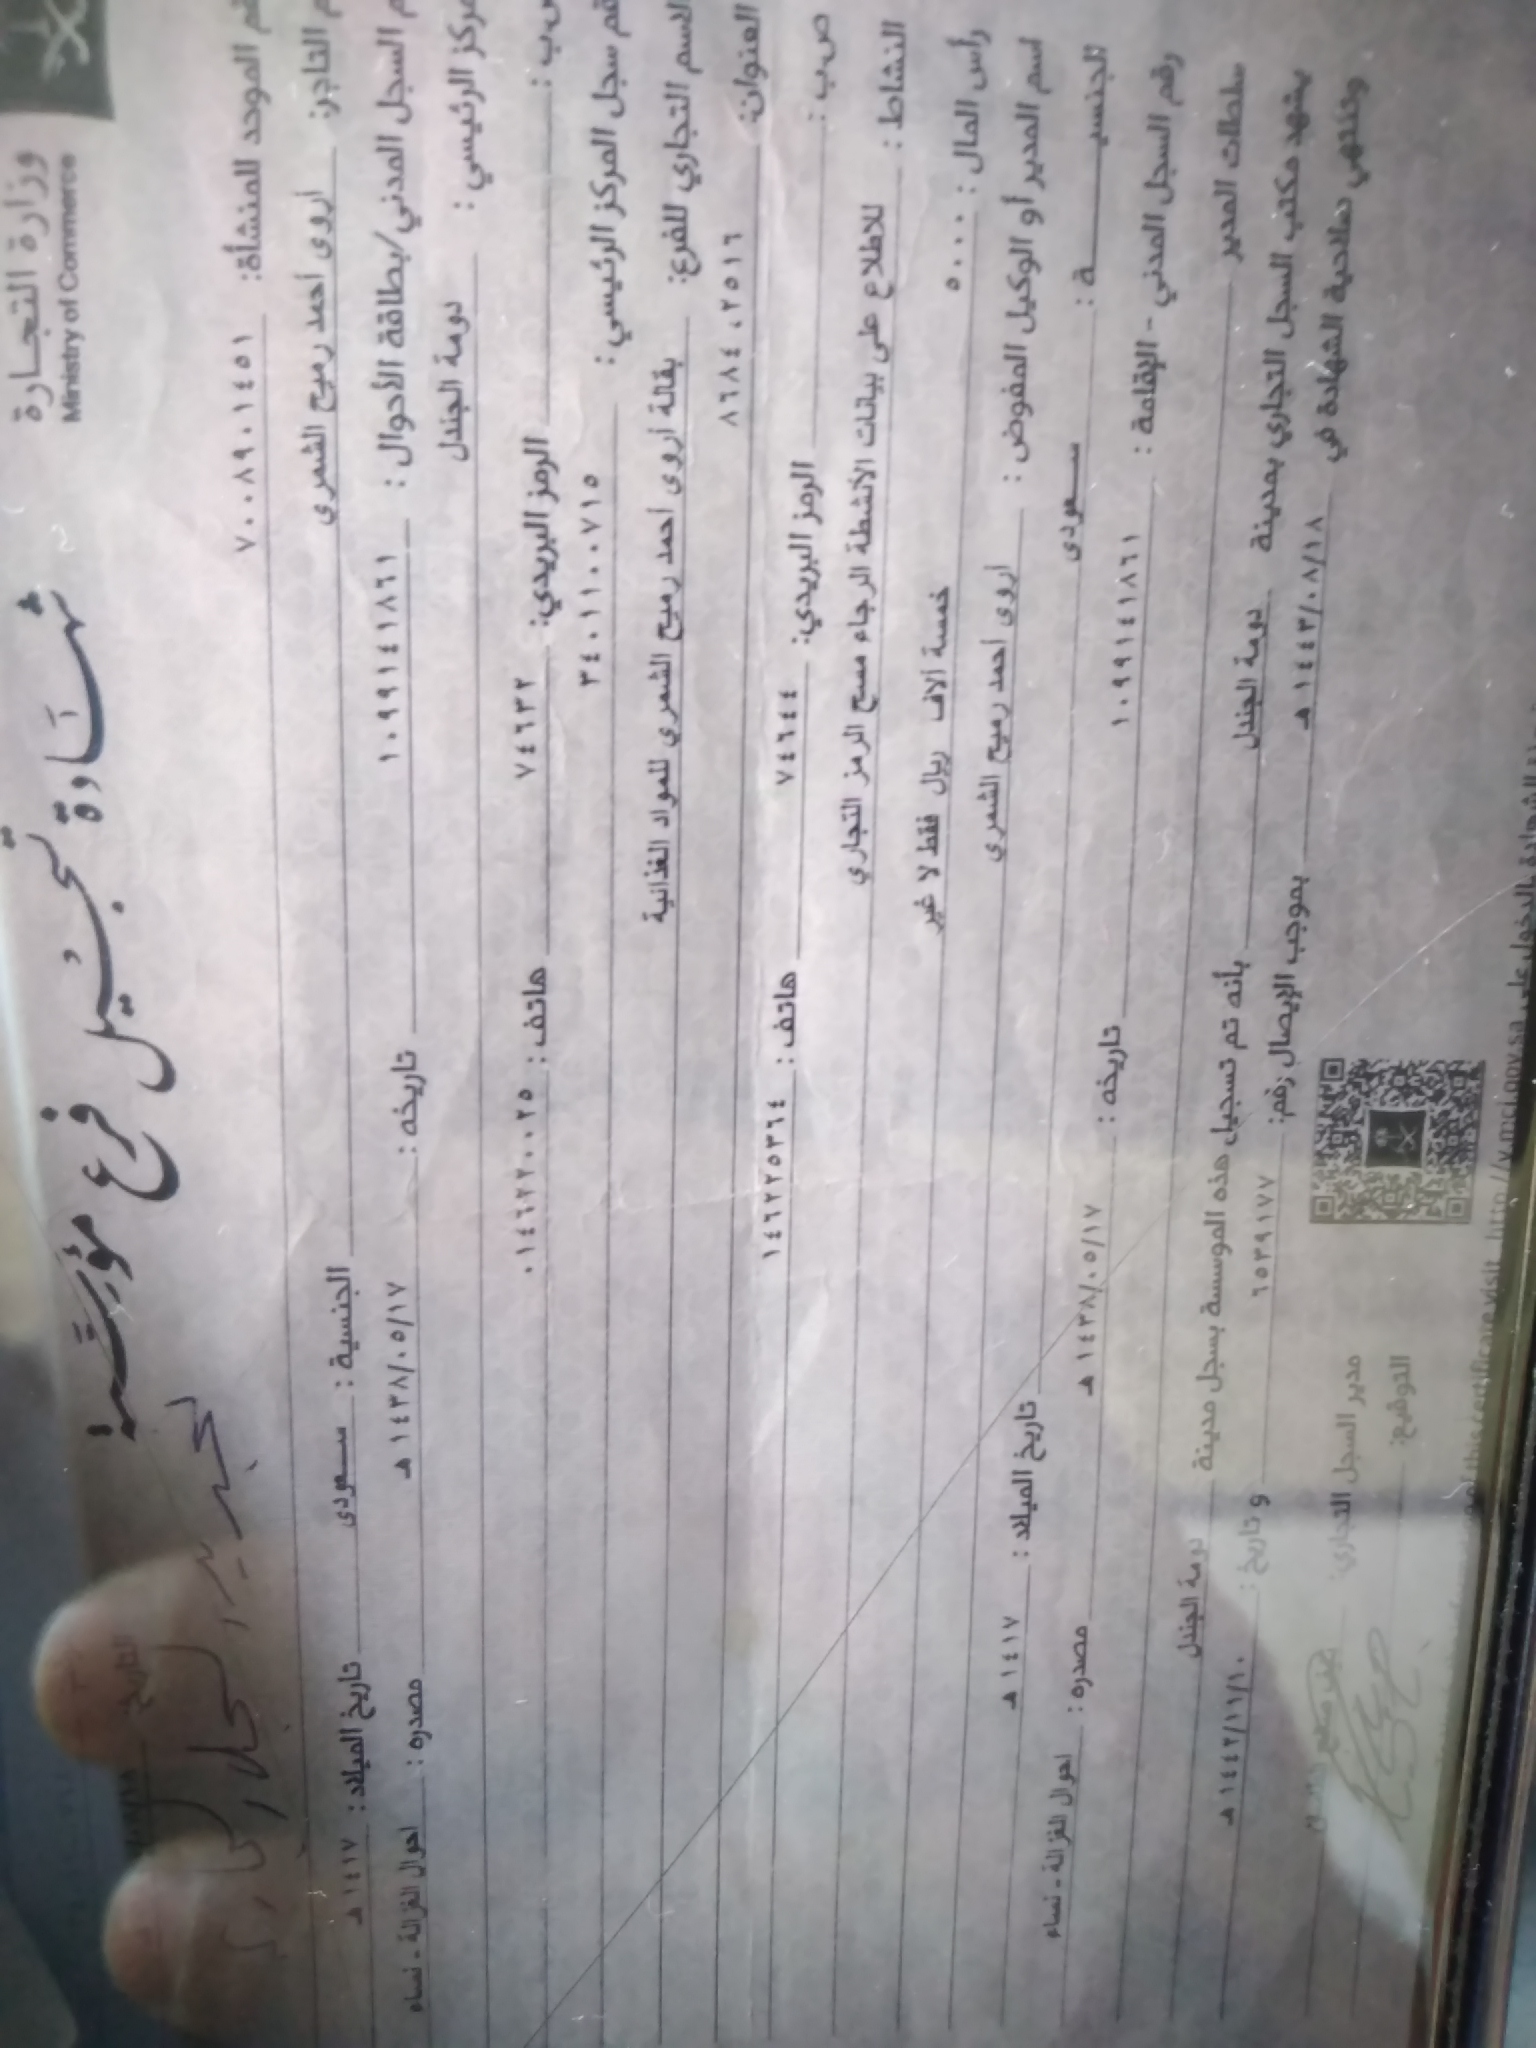 وزارة التجارة
Ministry of Commerce
شهادة تسجيل فرع مؤسسة
التاريخ
الموحد للمنشأة: ٧٠٠٨٩٠١٤٥١
التاجر: أروى أحمد رميح الشمري الجنسية: سعودى تاريخ الميلاد: ١٤١٧ هـ
السجل المدني/بطاقة الأحوال: ١٠٩٩١٤١٨٦١ تاريخه: ١٤٣٨/٠٥/١٧ هـ مصدره: احوال الغزالة - نساء
الرئيسي: دومة الجندل
الرمز البريدي: ٧٤٦٣٢ هاتف: ٠١٤٦٢٢٠٠٢٥
سجل المركز الرئيسي: ٣٤٠١١٠٠٧١٥
الاسم التجاري للفرع: بقالة أروى أحمد رميح الشمري للمواد الغذائية
العنوان: ٨٦٨٤،٢٥١٦
ص.ب: الرمز البريدي: ٧٤٦٤٤ هاتف: ١٤٦٢٢٥٣٦٤
النشاط: للاطلاع على بيانات الأنشطة الرجاء مسح الرمز التجاري
رأس المال: ٥٠٠٠ خمسة آلاف ريال فقط لا غير
اسم المدير أو الوكيل المفوض: أروى أحمد رميح الشمري تاريخ الميلاد: ١٤١٧ هـ
الجنسيــــــة: سعودى
رقم السجل المدني - الإقامة: ١٠٩٩١٤١٨٦١ تاريخه: ١٤٣٨/٠٥/١٧ هـ مصدره: احوال الغزالة - نساء
سلطات المدير
يشهد مكتب السجل التجاري بمدينة دومة الجندل بأنه تم تسجيل هذه المؤسسة بسجل مدينة دومة الجندل
وتنتهي صلاحية الشهادة في ١٤٤٣/٠٨/١٨ هـ بموجب الإيصال رقم: ٦٥٣٩١٧٧ و تاريخ: ١٤٤٢/١١/١٠ هـ
مدير السجل التجاري:
التوقيع: